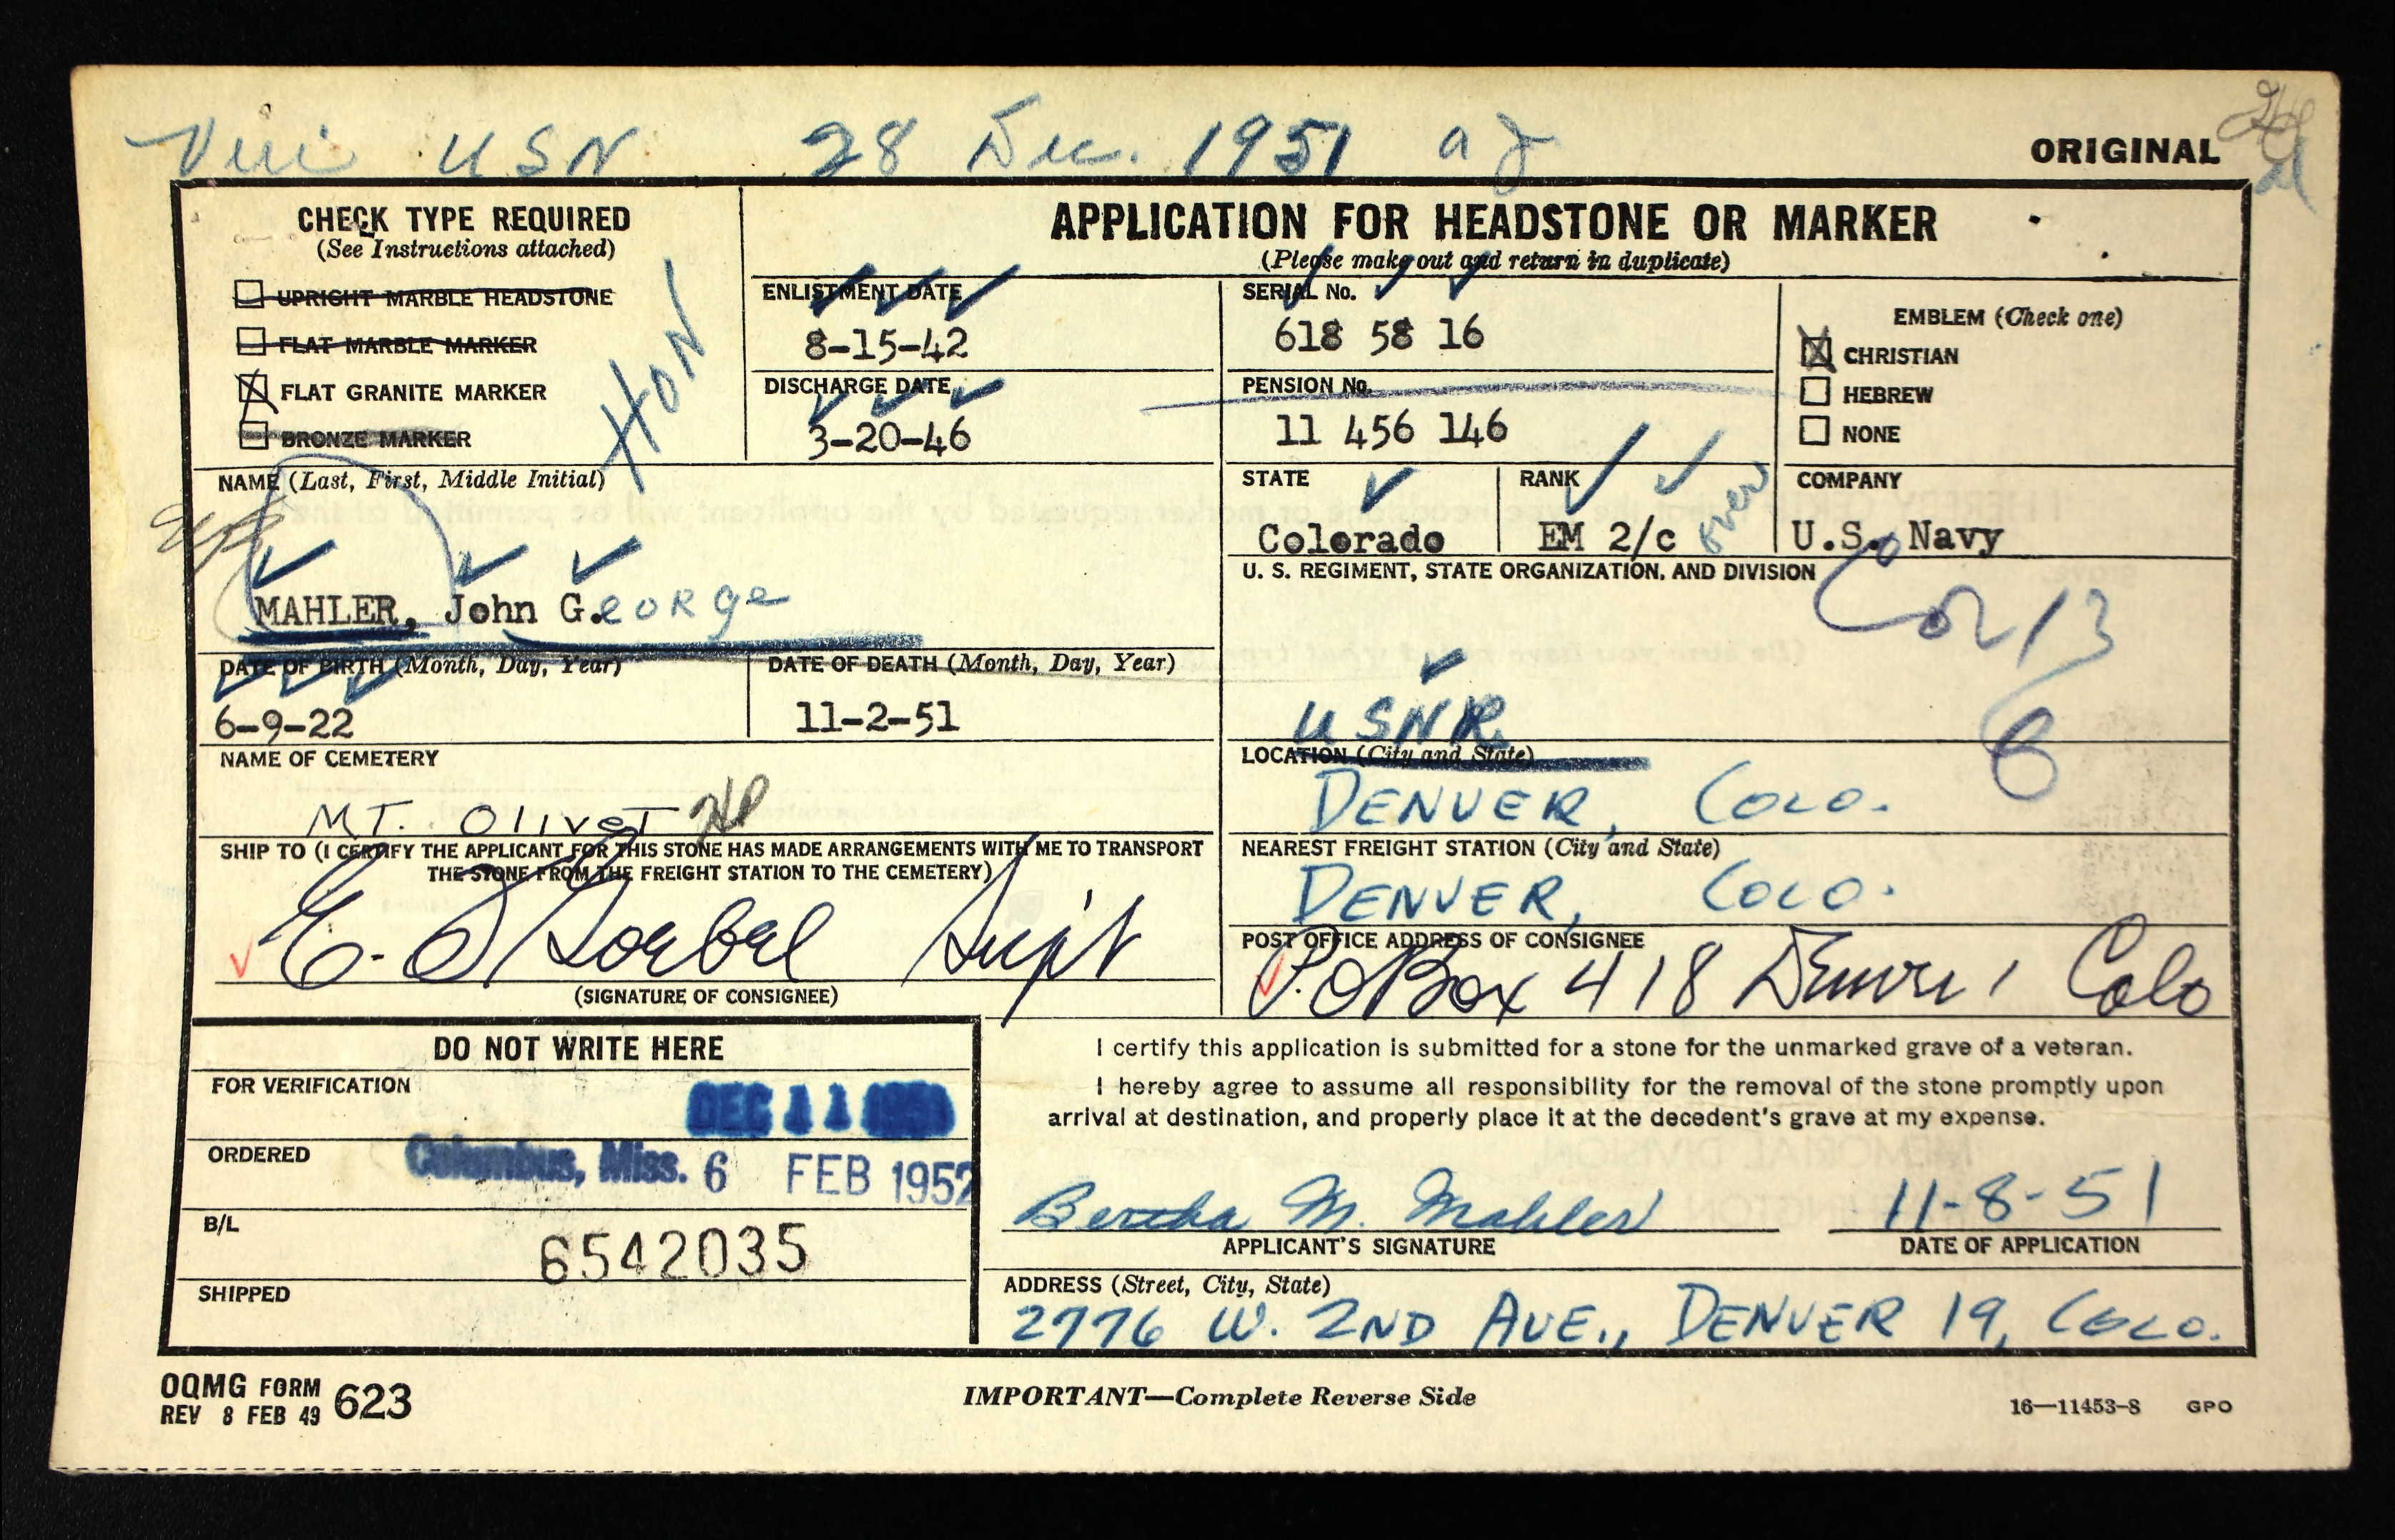 Veri USN 28 Dec. 1951
ORIGINAL
CHECK TYPE REQUIRED
(See Instructions attached)
UPRIGHT MARBLE HEADSTONE
FLAT MARBLE MARKER
FLAT GRANITE MARKER
BRONZE MARKER
HON
APPLICATION FOR HEADSTONE OR MARKER
(Please make out and return in duplicate)
ENLISTMENT DATE
8-15-42
DISCHARGE DATE
3-20-46
SERIAL No.
618 58 16
PENSION No.
11 456 146
EMBLEM (Check one)
CHRISTIAN
HEBREW
NONE
NAME (Last, First, Middle Initial)
MAHLER, John G.eorge
STATE
Colorado
RANK
EM 2/c
over
COMPANY
U.S. Navy
U. S. REGIMENT, STATE ORGANIZATION, AND DIVISION
USNR
DATE OF BIRTH (Month, Day, Year)
6-9-22
DATE OF DEATH (Month, Day, Year)
11-2-51
NAME OF CEMETERY
MT. OlivеT
LOCATION (City and State)
DENVER, COLO.
SHIP TO (I CERTIFY THE APPLICANT FOR THIS STONE HAS MADE ARRANGEMENTS WITH ME TO TRANSPORT
THE STONE FROM THE FREIGHT STATION TO THE CEMETERY)
Sup't
(SIGNATURE OF CONSIGNEE)
NEAREST FREIGHT STATION (City and State)
DENVER, COLO.
POST OFFICE ADDRESS OF CONSIGNEE
P.O Box 418 Denver 1 Colo
DO NOT WRITE HERE
FOR VERIFICATION
DEC 11 1951
ORDERED
Columbus, Miss. 6 FEB 1952
B/L
6542035
SHIPPED
I certify this application is submitted for a stone for the unmarked grave of a veteran.
I hereby agree to assume all responsibility for the removal of the stone promptly upon
arrival at destination, and properly place it at the decedent's grave at my expense.
Bertha M. Mahler
11-8-51
APPLICANT'S SIGNATURE
DATE OF APPLICATION
ADDRESS (Street, City, State)
2776 W. 2ND AVE., DENVER 19, COLO.
OQMG FORM 623
REV 8 FEB 49
IMPORTANT—Complete Reverse Side
16—11453-8 GPO